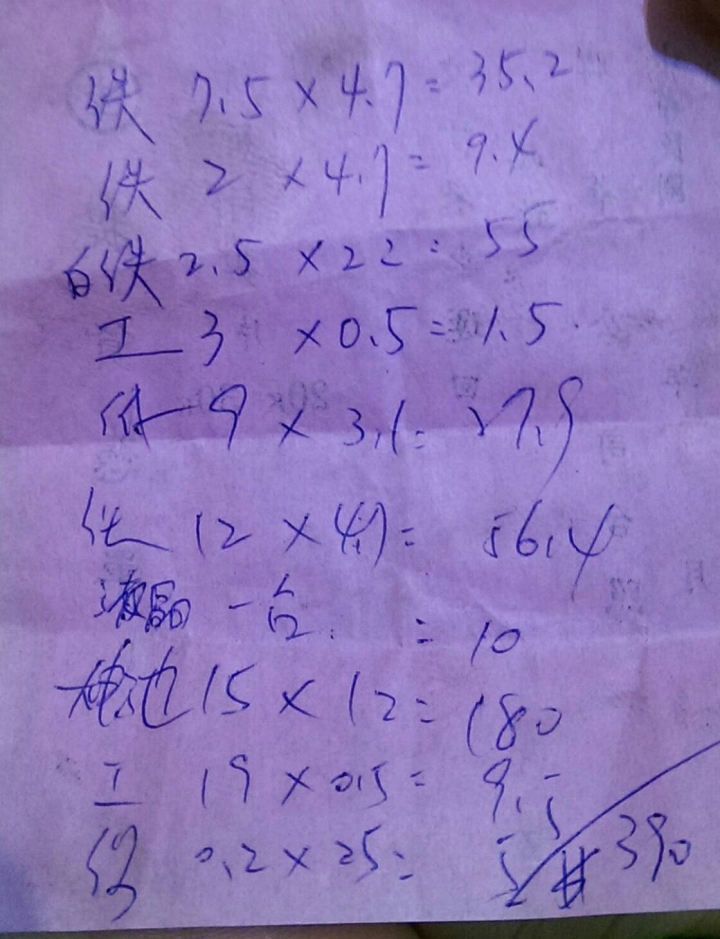 铁 7.5 × 4.7 = 35.2
铁 2 × 4.7 = 9.4
白铁 2.5 × 22 = 55
工 3 × 0.5 = 1.5
9 × 3.1 = 27.9
铁 12 × 4.7 = 56.4
液晶 一台 = 10
电池 15 × 12 = 180
工 19 × 0.5 = 9.5
0.2 × 25 = 5
共 390